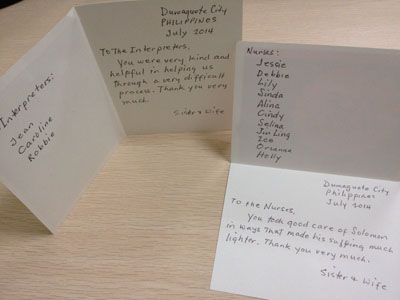 Interpreters:
Jean
Caroline
Robbie
Dumaguete City
PHILIPPINES
July 2014
To The Interpreters,
You were very kind and
helpful in helping us
through a very difficult
process. Thank you very
much.
Sister & Wife
Nurses:
Jessie
Debbie
Lily
Sinda
Alina
Cindy
Selina
Jin Ling
Ice
Orianna
Holly
Dumaguete City
Philippines
July 2014
To the Nurses,
You took good care of Solomon
in ways that made his suffing much
lighter. Thank you very much.
Sister & Wife